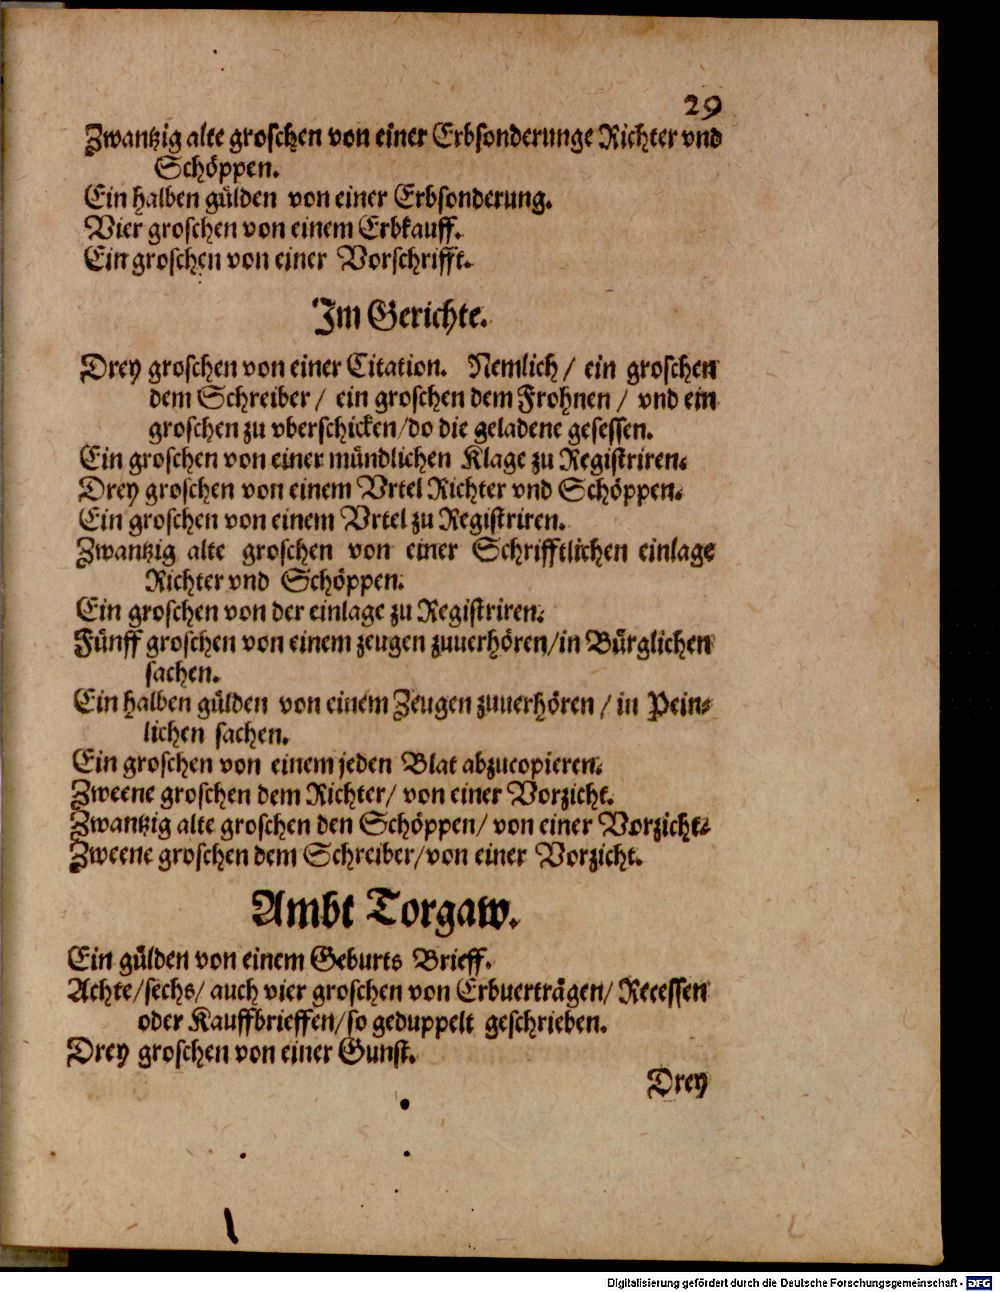 29
Zwantzig alte groschen von einer Erbsonderunge Richter vnd
Schöppen.
Ein halben gülden von einer Erbsonderung.
Vier groschen von einem Erbkauff.
Ein groschen von einer Vorschrifft.
Im Gerichte.
Drey groschen von einer Citation. Nemlich / ein groschen
dem Schreiber / ein groschen dem Frohnen / vnd ein
groschen zu vberschicken/do die geladene gesessen.
Ein groschen von einer mündlichen Klage zu Registriren.
Drey groschen von einem Vrtel Richter vnd Schöppen.
Ein groschen von einem Vrtel zu Registriren.
Zwantzig alte groschen von einer Schrifftlichen einlage
Richter vnd Schöppen.
Ein groschen von der einlage zu Registriren.
Fünff groschen von einem zeugen zuuerhören/in Bürglichen
sachen.
Ein halben gülden von einem Zeugen zuuerhören / in Pein-
lichen sachen.
Ein groschen von einem jeden Blat abzucopieren.
Zweene groschen dem Richter/ von einer Vorzicht.
Zwantzig alte groschen den Schöppen/ von einer Vorzicht.
Zweene groschen dem Schreiber/von einer Vorzicht.
Ambt Torgaw.
Ein gülden von einem Geburts Brieff.
Achte/sechs/ auch vier groschen von Erbuerträgen/ Recessen
oder Kauffbrieffen/so geduppelt geschrieben.
Drey groschen von einer Gunst.
Drey
Digitalisierung gefördert durch die Deutsche Forschungsgemeinschaft - DFG